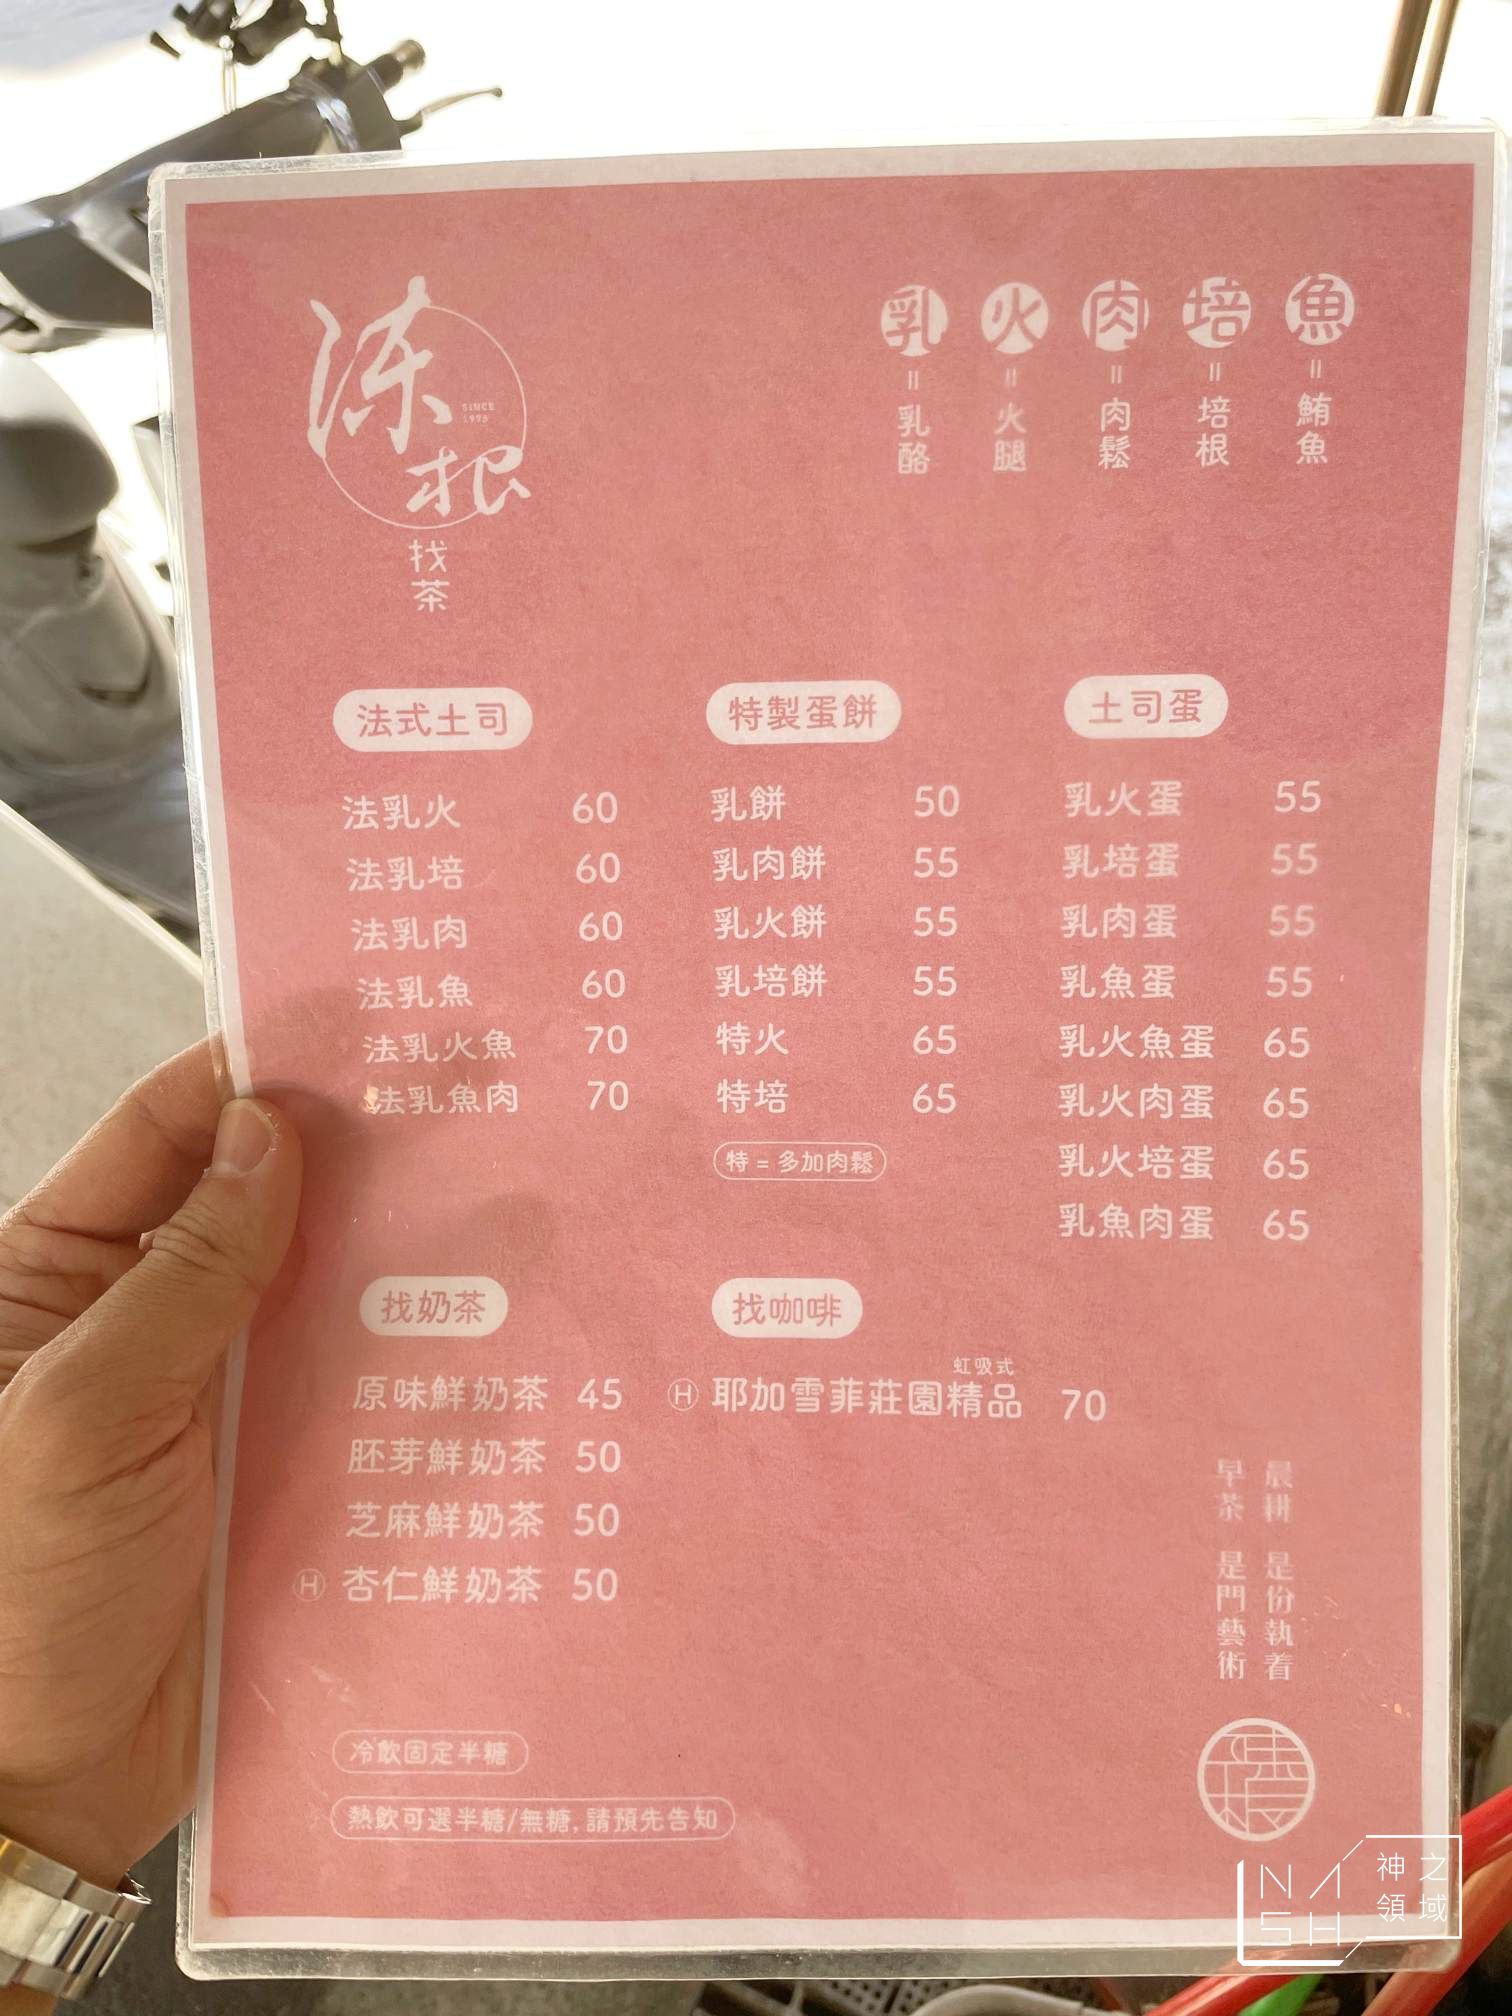 涑根
SINCE
1975
找茶
乳=乳酪
火=火腿
肉=肉鬆
培=培根
魚=鮪魚
法式土司
法乳火 60
法乳培 60
法乳肉 60
法乳魚 60
法乳火魚 70
法乳魚肉 70
特製蛋餅
乳餅 50
乳肉餅 55
乳火餅 55
乳培餅 55
特火 65
特培 65
特=多加肉鬆
土司蛋
乳火蛋 55
乳培蛋 55
乳肉蛋 55
乳魚蛋 55
乳火魚蛋 65
乳火肉蛋 65
乳火培蛋 65
乳魚肉蛋 65
找奶茶
原味鮮奶茶 45
胚芽鮮奶茶 50
芝麻鮮奶茶 50
Ⓗ 杏仁鮮奶茶 50
找咖啡
虹吸式
Ⓗ 耶加雪菲莊園精品 70
晨耕 是份執着
早茶 是門藝術
冷飲固定半糖
熱飲可選半糖/無糖,請預先告知
NASH
神之
領域